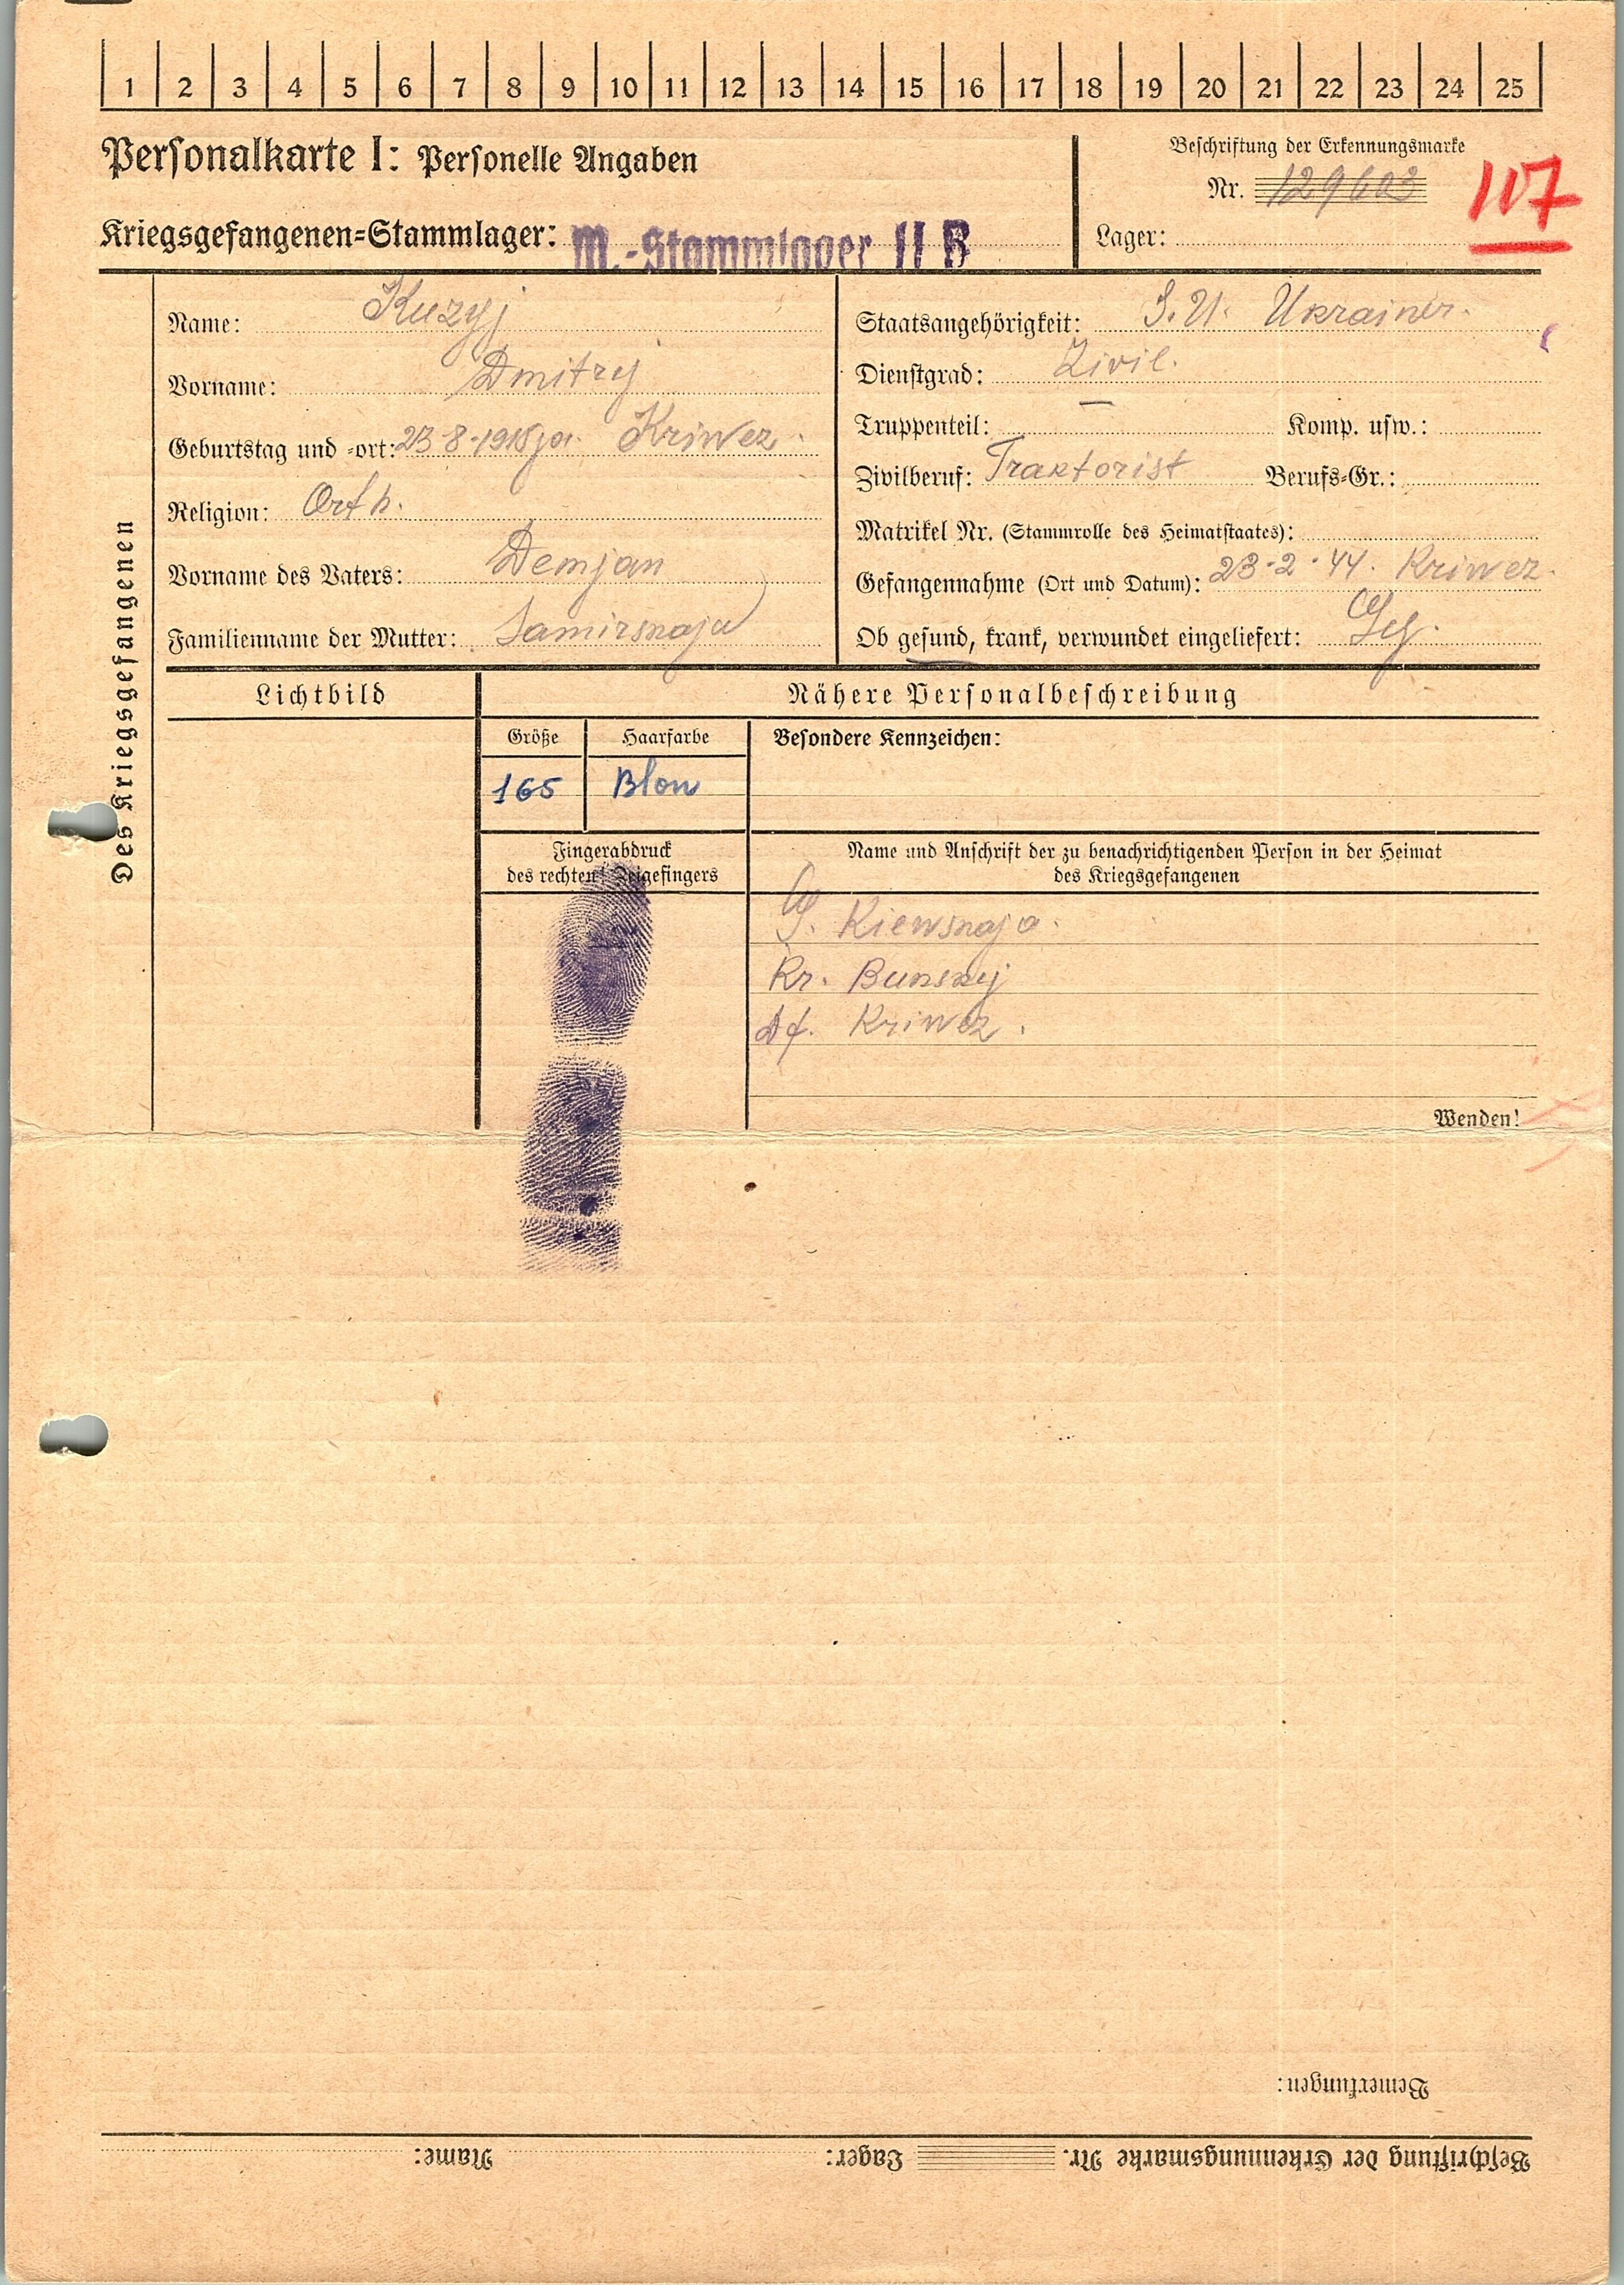 1 2 3 4 5 6 7 8 9 10 11 12 13 14 15 16 17 18 19 20 21 22 23 24 25
Personalkarte I: Personelle Angaben
Kriegsgefangenen=Stammlager: M.-Stammlager II B
Beschriftung der Erkennungsmarke
Nr. 129603
107
Lager:
Des Kriegsgefangenen
Name: Kuzyj
Vorname: Dmitrij
Geburtstag und =ort: 23-8-1915 Kriwez.
Religion: Orth.
Vorname des Vaters: Demjan
Familienname der Mutter:
Staatsangehörigkeit: S.U. Ukrainer.
Dienstgrad: Zivil.
Truppenteil: — Komp. usw.:
Zivilberuf: Traktorist Berufs=Gr.:
Matrikel Nr. (Stammrolle des Heimatstaates):
Gefangennahme (Ort und Datum): 23-2-44. Kriwez.
Ob gesund, krank, verwundet eingeliefert: Ges.
Lichtbild
Nähere Personalbeschreibung
Größe Haarfarbe Besondere Kennzeichen:
165 Blon
Fingerabdruck
des rechten! Zeigefingers
Name und Anschrift der zu benachrichtigenden Person in der Heimat
des Kriegsgefangenen
G. Kiewskaja.
Kr. Bunskij
Df. Kriwez.
Wenden!
Bemerkungen:
Beschriftung der Erkennungsmarke Nr. Lager: Name: